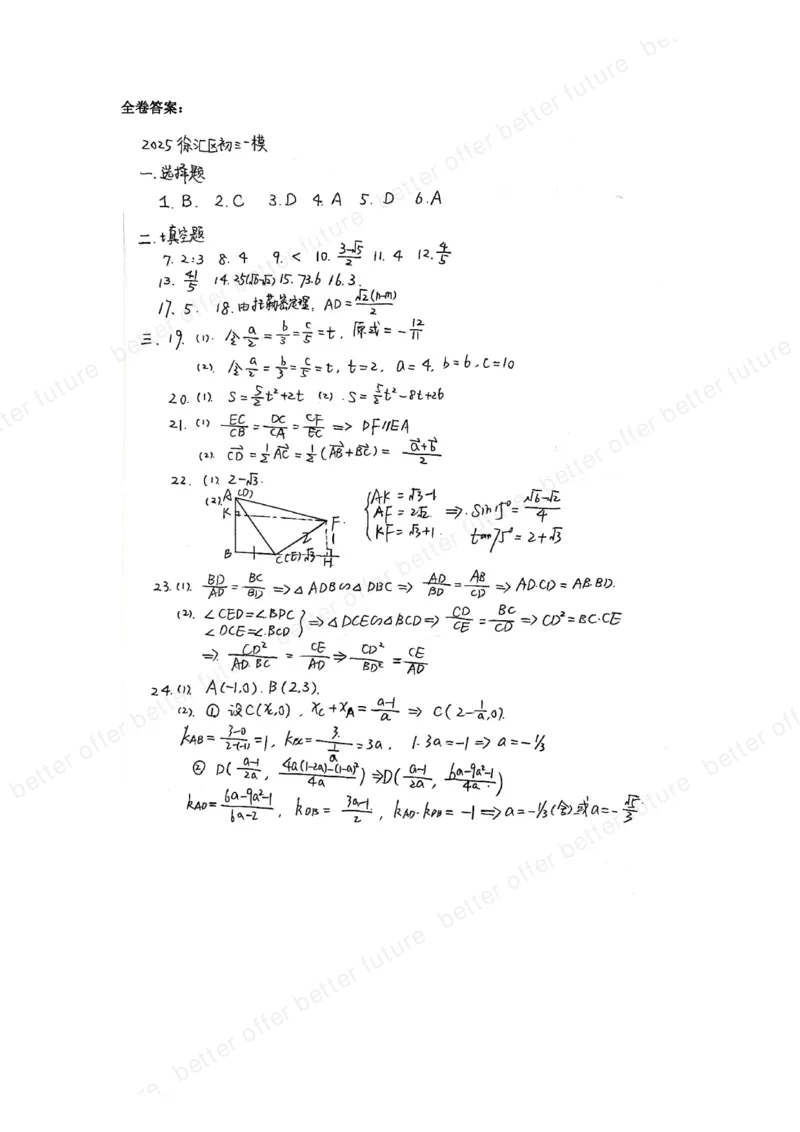 全卷答案：
2025徐汇区初三一模
一.选择题
1. B. 2. C 3. D 4. A 5. D 6. A
二.填空题
7. 2:3 8. 4 9. < 10. (3-√5)/2 11. 4 12. 4/5
13. 41/5 14. 25(√6-√2) 15. 73.6 16. 3.
17. 5. 18. 由托勒密定理, AD = √2(n-m)/2
三. 19. (1). 令 a/2 = b/3 = c/5 = t, 原式 = -12/11
(2). 令 a/2 = b/3 = c/5 = t, t=2, a=4, b=6, c=10
20. (1). S = 5/2 t²+2t (2). S = 5/2 t²-8t+26
21. (1) EC/CB = DC/CA = CF/EC => DF∥EA
(2). CD→ = 1/2 AC→ = 1/2 (AB→+BC→) = (a→+b→)/2
22. (1). 2-√3.
(2). A(D) K B C(E) √3 H F 2 1 1
{ AK = √3-1 AF = 2√2 KF = √3+1 => sin15° = (√6-√2)/4
tan75° = 2+√3
23. (1). BD/AD = BC/BD => △ADB∽△DBC => AD/BD = AB/CD => AD·CD = AB·BD.
(2). ∠CED=∠BDC ∠DCE=∠BCD } => △DCE∽△BCD => CD/CE = BC/CD => CD²=BC·CE
=> CD²/AD·BC = CE/AD => CD²/BD² = CE/AD
24. (1). A(-1,0). B(2,3).
(2). ① 设C(x,0), xC+xA = (a-1)/a => C(2-1/a,0).
kAB = (3-0)/(2-(-1)) = 1, kBC = 3/(1/a) = 3a, 1·3a=-1 => a=-1/3
② D((a-1)/2a, (4a(1-2a)-(1-a)²)/4a) => D((a-1)/2a, (6a-9a²-1)/4a)
kAD = (6a-9a²-1)/(6a-2), kDB = (3a-1)/2, kAD·kDB = -1 => a=-1/3(舍)或a=-√5/3
better offer better future